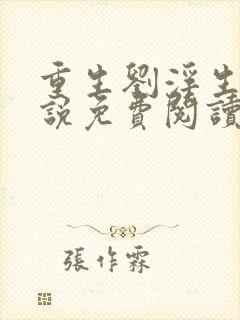 重生劉淫生
說免費閱讀
張作霖